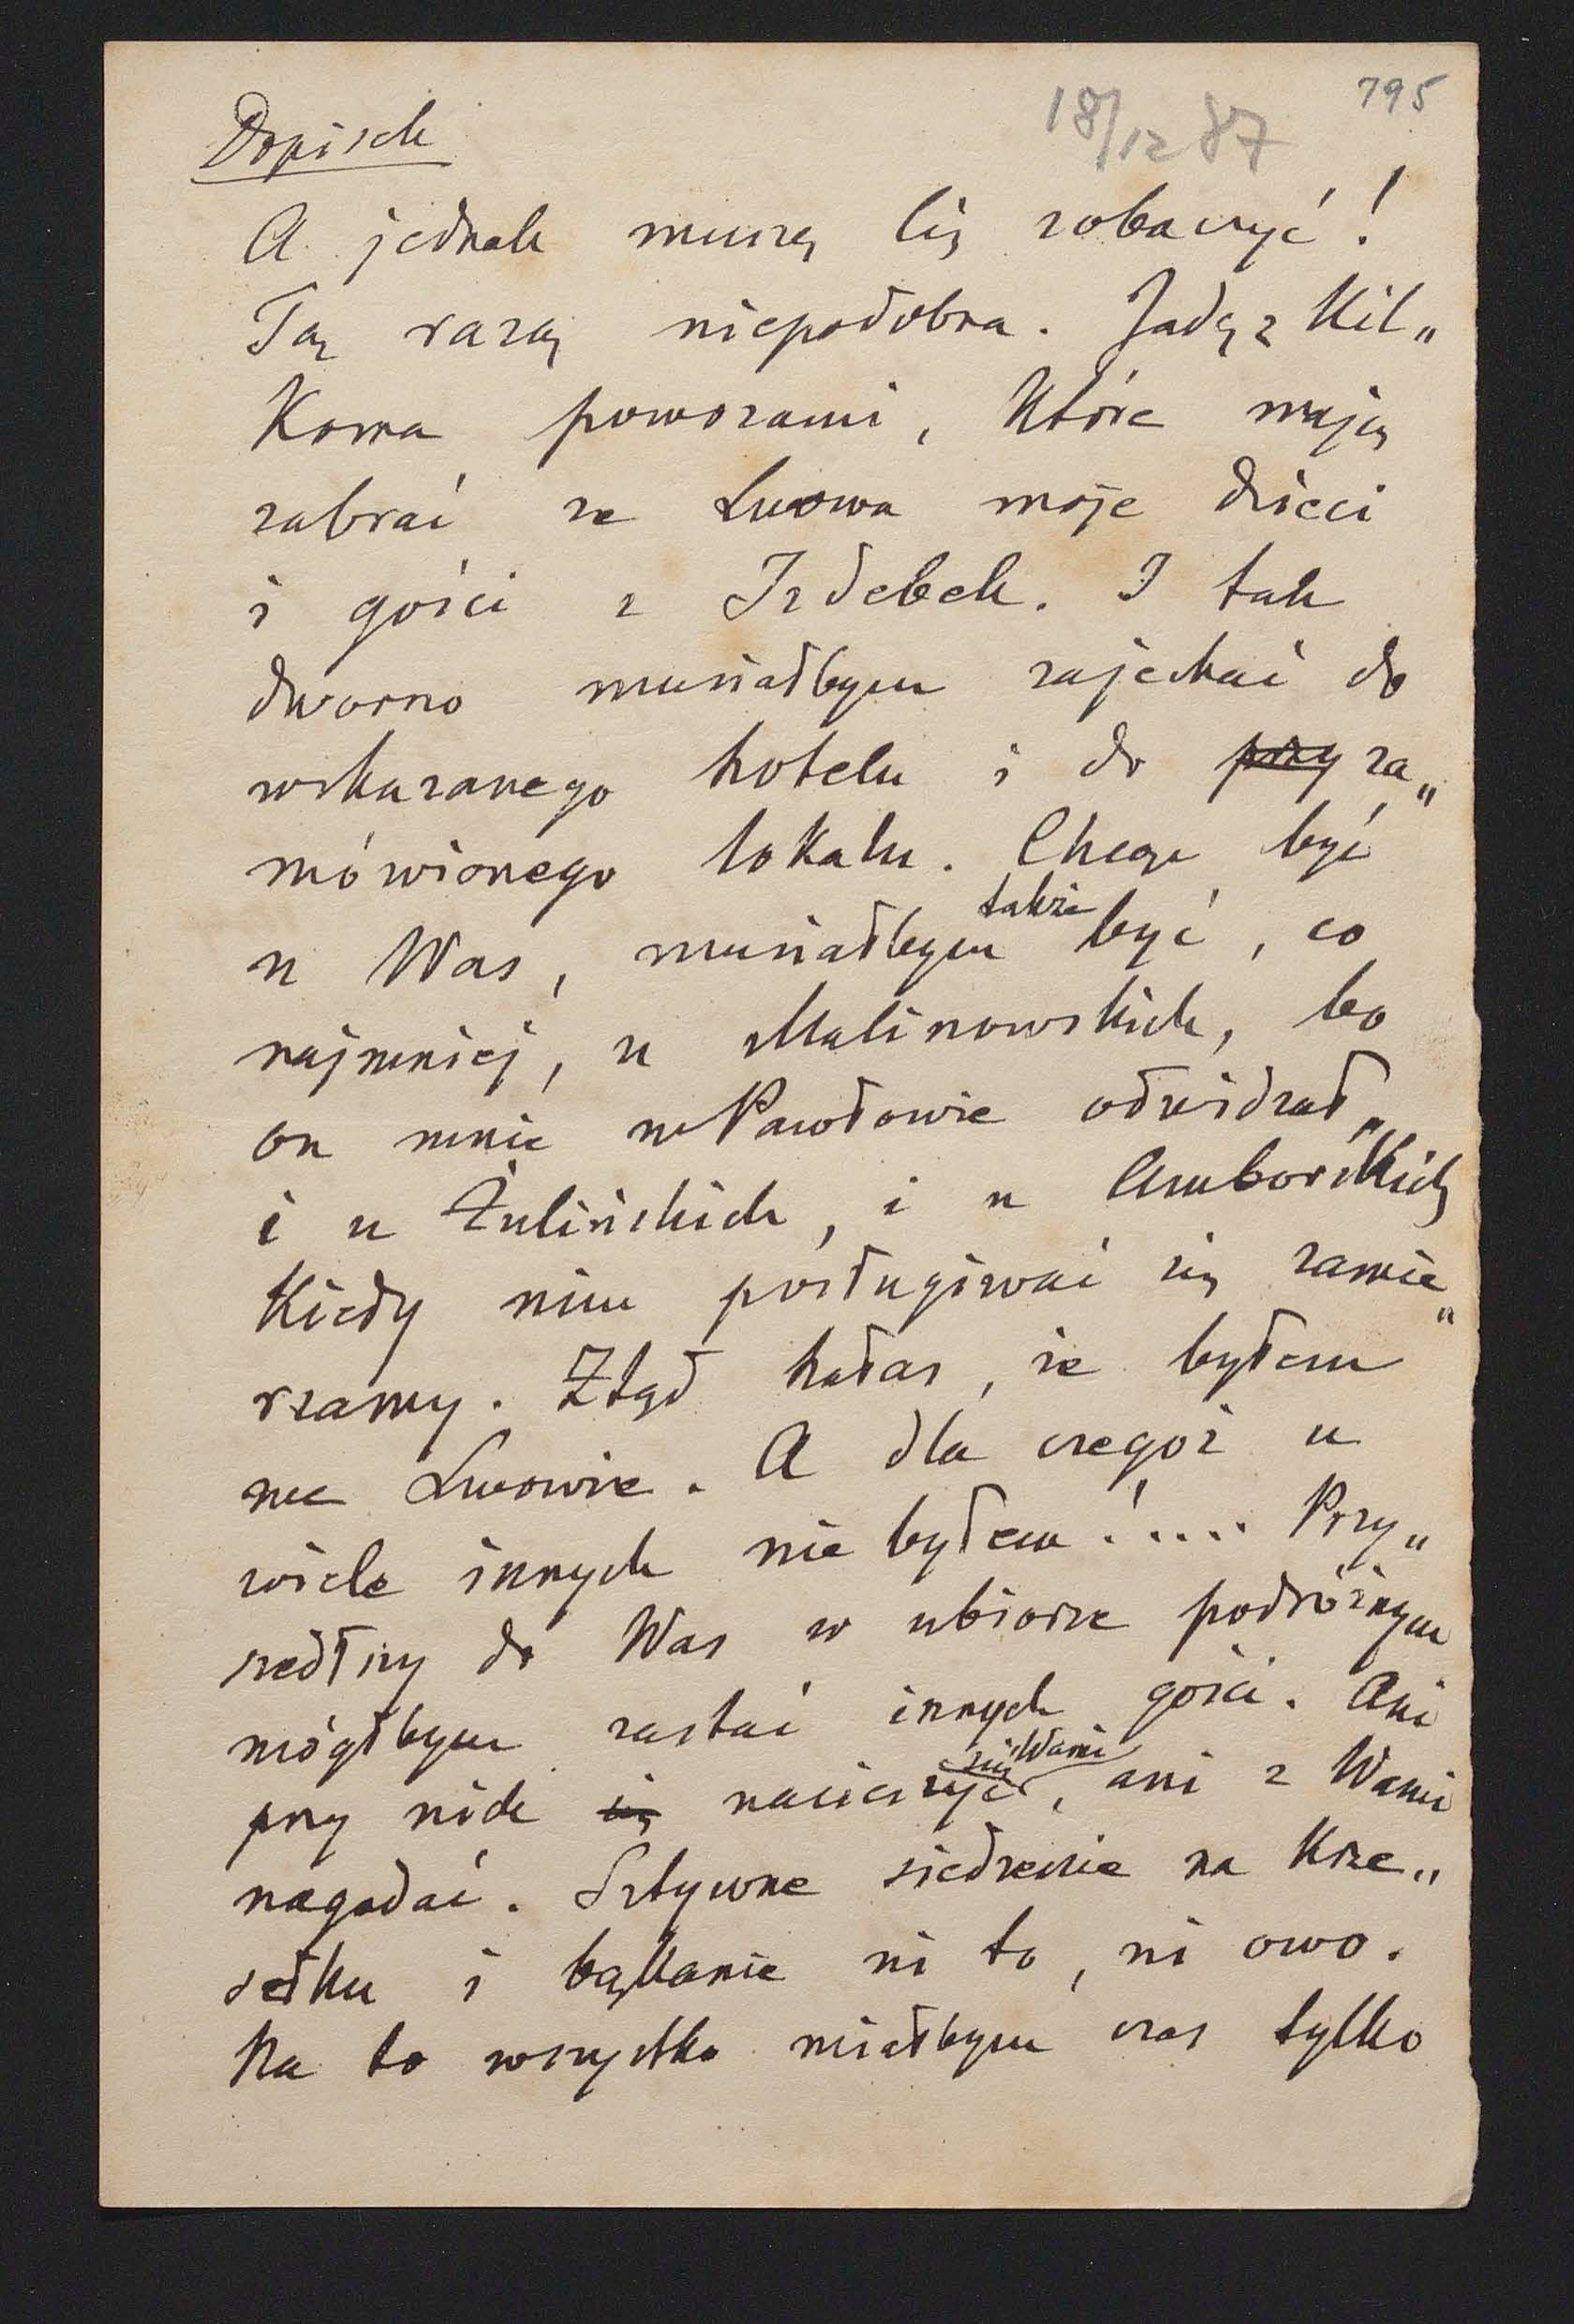 795
18/12 87
Dopisek
A jednak muszę Cię zobaczyć!
Tą razą niepodobna. Jadę z kil„
koma powozami, które mają
zabrać ze Lwowa moje dzieci
i gości z Izdebek. I tak
dworno musiałbym zajechać do
wskazanego hotelu i do przy za„
mówionego lokalu. Chcąc być
u Was, musiałbym także być, co
najmniej, u Malinowskich, bo
on mnie w Pawłowie odwidzał,
i u Żulińskich, i u Amborskich
kiedy nim posługiwać się zamie„
rzamy. Ztąd hałas, że byłem
we Lwowie. A dla czegoż u
wiele innych nie byłem!.... Przy„
szedłszy do Was w ubiorze podróżnym
mógłbym zastać innych gości. Ani
przy nich się nacieszyć się Wami, ani z Wami
nagadać. Sztywne siedzenie na krze„
sełku i bąkanie ni to, ni owo.
Na to wszystko miałbym czas tylko